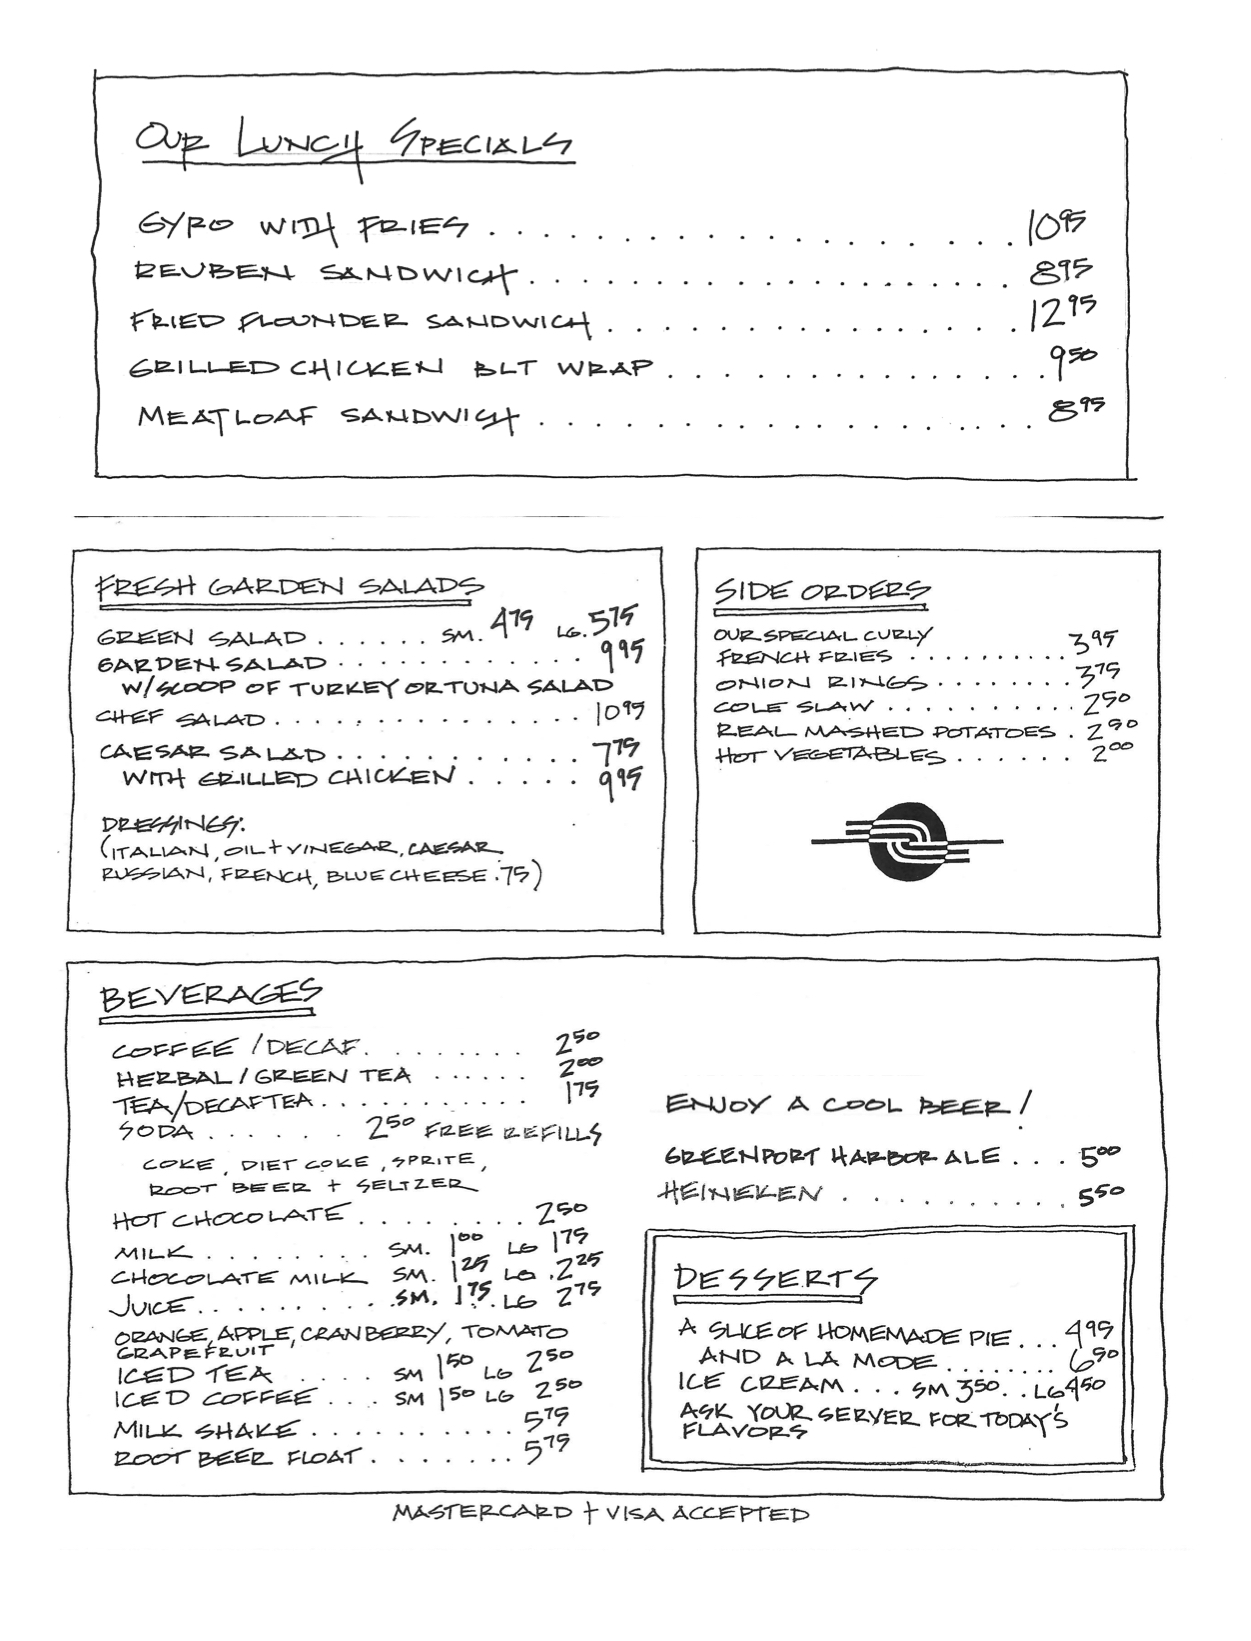 OUR LUNCH SPECIALS
GYRO WITH FRIES . . . . . . . . . . . . . . . . . . . . 10 95
REUBEN SANDWICH . . . . . . . . . . . . . . . . . . . 8 95
FRIED FLOUNDER SANDWICH . . . . . . . . . . . . . . . . 12 95
GRILLED CHICKEN BLT WRAP . . . . . . . . . . . . . . 9 50
MEATLOAF SANDWICH . . . . . . . . . . . . . . . . . . . 8 95
FRESH GARDEN SALADS
GREEN SALAD . . . . . . SM. 4 75 LG. 5 75
GARDEN SALAD . . . . . . . . . . . . 9 95
W/SCOOP OF TURKEY OR TUNA SALAD
CHEF SALAD . . . . . . . . . . . . . . . 10 95
CAESAR SALAD . . . . . . . . . . . . 7 75
WITH GRILLED CHICKEN . . . . . 9 95
DRESSINGS:
(ITALIAN, OIL + VINEGAR, CAESAR
RUSSIAN, FRENCH, BLUE CHEESE .75)
SIDE ORDERS
OUR SPECIAL CURLY
FRENCH FRIES . . . . . . . . . . 3 95
ONION RINGS . . . . . . . . 3 75
COLE SLAW . . . . . . . . . . 2 50
REAL MASHED POTATOES . 2 50
HOT VEGETABLES . . . . . . 2 00
BEVERAGES
COFFEE / DECAF . . . . . . . . 2 50
HERBAL / GREEN TEA . . . . . . 2 00
TEA/DECAF TEA . . . . . . . . . . . 1 75
SODA . . . . . . 2 50 FREE REFILLS
COKE, DIET COKE, SPRITE,
ROOT BEER + SELTZER
HOT CHOCOLATE . . . . . . . . 2 50
MILK . . . . . . . . SM. 1 00 LG 1 75
CHOCOLATE MILK SM. 1 25 LG . 2 25
JUICE . . . . . . . . . . SM. 1 75 . LG 2 75
ORANGE, APPLE, CRANBERRY, TOMATO
GRAPEFRUIT
ICED TEA . . . . SM 1 50 LG 2 50
ICED COFFEE . . . . SM 1 50 LG 2 50
MILK SHAKE . . . . . . . . . . 5 75
ROOT BEER FLOAT . . . . . . . . 5 75
ENJOY A COOL BEER!
GREENPORT HARBOR ALE . . . 5 00
HEINEKEN . . . . . . . . . . 5 50
DESSERTS
A SLICE OF HOMEMADE PIE . . . 4 95
AND A LA MODE . . . . . . . . 6 90
ICE CREAM . . . SM 3 50 . . LG 4 50
ASK YOUR SERVER FOR TODAY'S
FLAVORS
MASTERCARD + VISA ACCEPTED